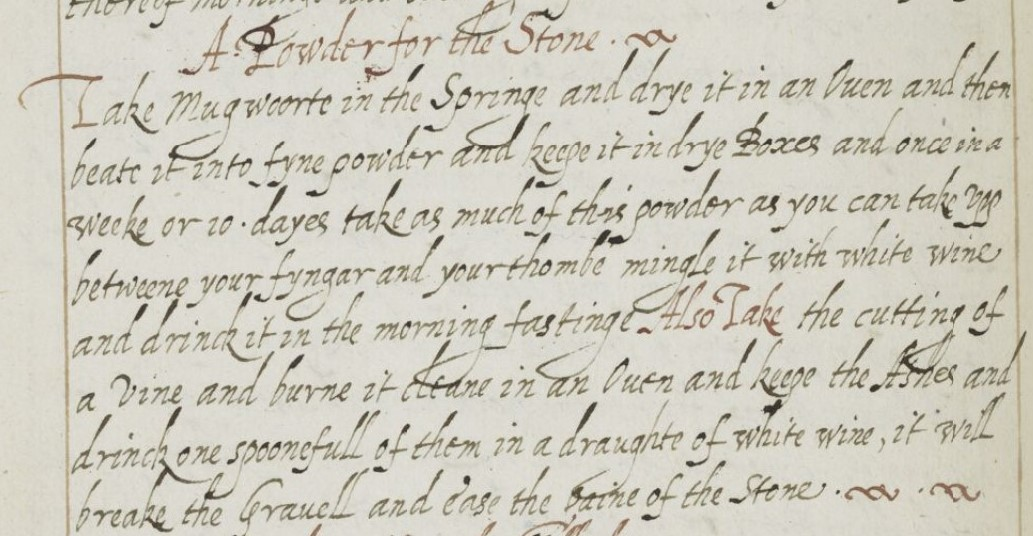 thereof morninge and
A Powder for the Stone.
Take Mugwoorte in the Springe and drye it in an Oven and then
beate it into fyne powder and keepe it in drye Boxes and once in a
weeke or 10. dayes take as much of this powder as you can take vpp
betweene your fyngar and your thombe mingle it with white wine
and drinck it in the morning fastinge Also Take the cutting of
a Vine and burne it cleane in an Oven and keepe the Ashes and
drinck one spoonefull of them in a draughte of white wine, it will
breake the Gravell and ease the paine of the Stone.